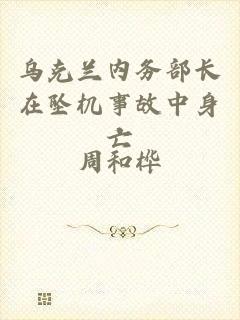 乌克兰内务部长
在坠机事故中身
亡
周和桦